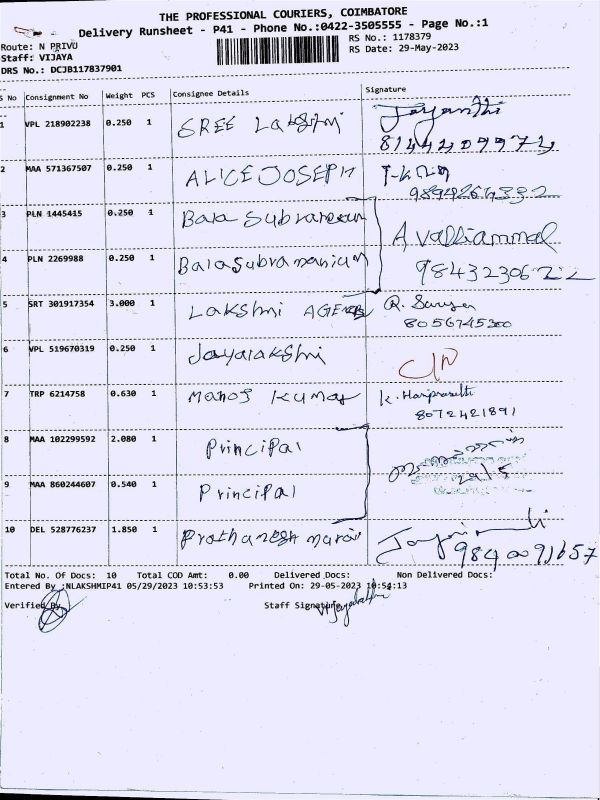 THE PROFESSIONAL COURIERS, COIMBATORE
Delivery Runsheet - P41 - Phone No.:0422-3505555 - Page No.:1
Route: N PRIVU
RS No.: 1178379
Staff: VIJAYA
RS Date: 29-May-2023
DRS No.: DCJB117837901
S No Consignment No Weight PCS Consignee Details Signature
1 VPL 218902238 0.250 1 SREE Lakshmi Jayanthi
2 MAA 571367507 0.250 1 ALICE JOSEPH
9894264332
3 PLN 1445415 0.250 1 Bala Subramanian
4 PLN 2269988 0.250 1 Balasubramanium Avalliammal
9843230622
5 SRT 301917354 3.000 1 LAKShmi AGENCIES
8056745300
6 VPL 519670319 0.250 1 Jayalakshmi
7 TRP 6214758 0.630 1 Manoj Kumar K. Hariprasath
8072421891
8 MAA 102299592 2.080 1 Principal
9 MAA 860244607 0.540 1 Principal
10 DEL 528776237 1.850 1
Total No. Of Docs: 10 Total COD Amt: 0.00 Delivered Docs: Non Delivered Docs:
Entered By :NLAKSHMIP41 05/29/2023 10:53:53 Printed On: 29-05-2023 10:54:13
Verified By Staff Signature